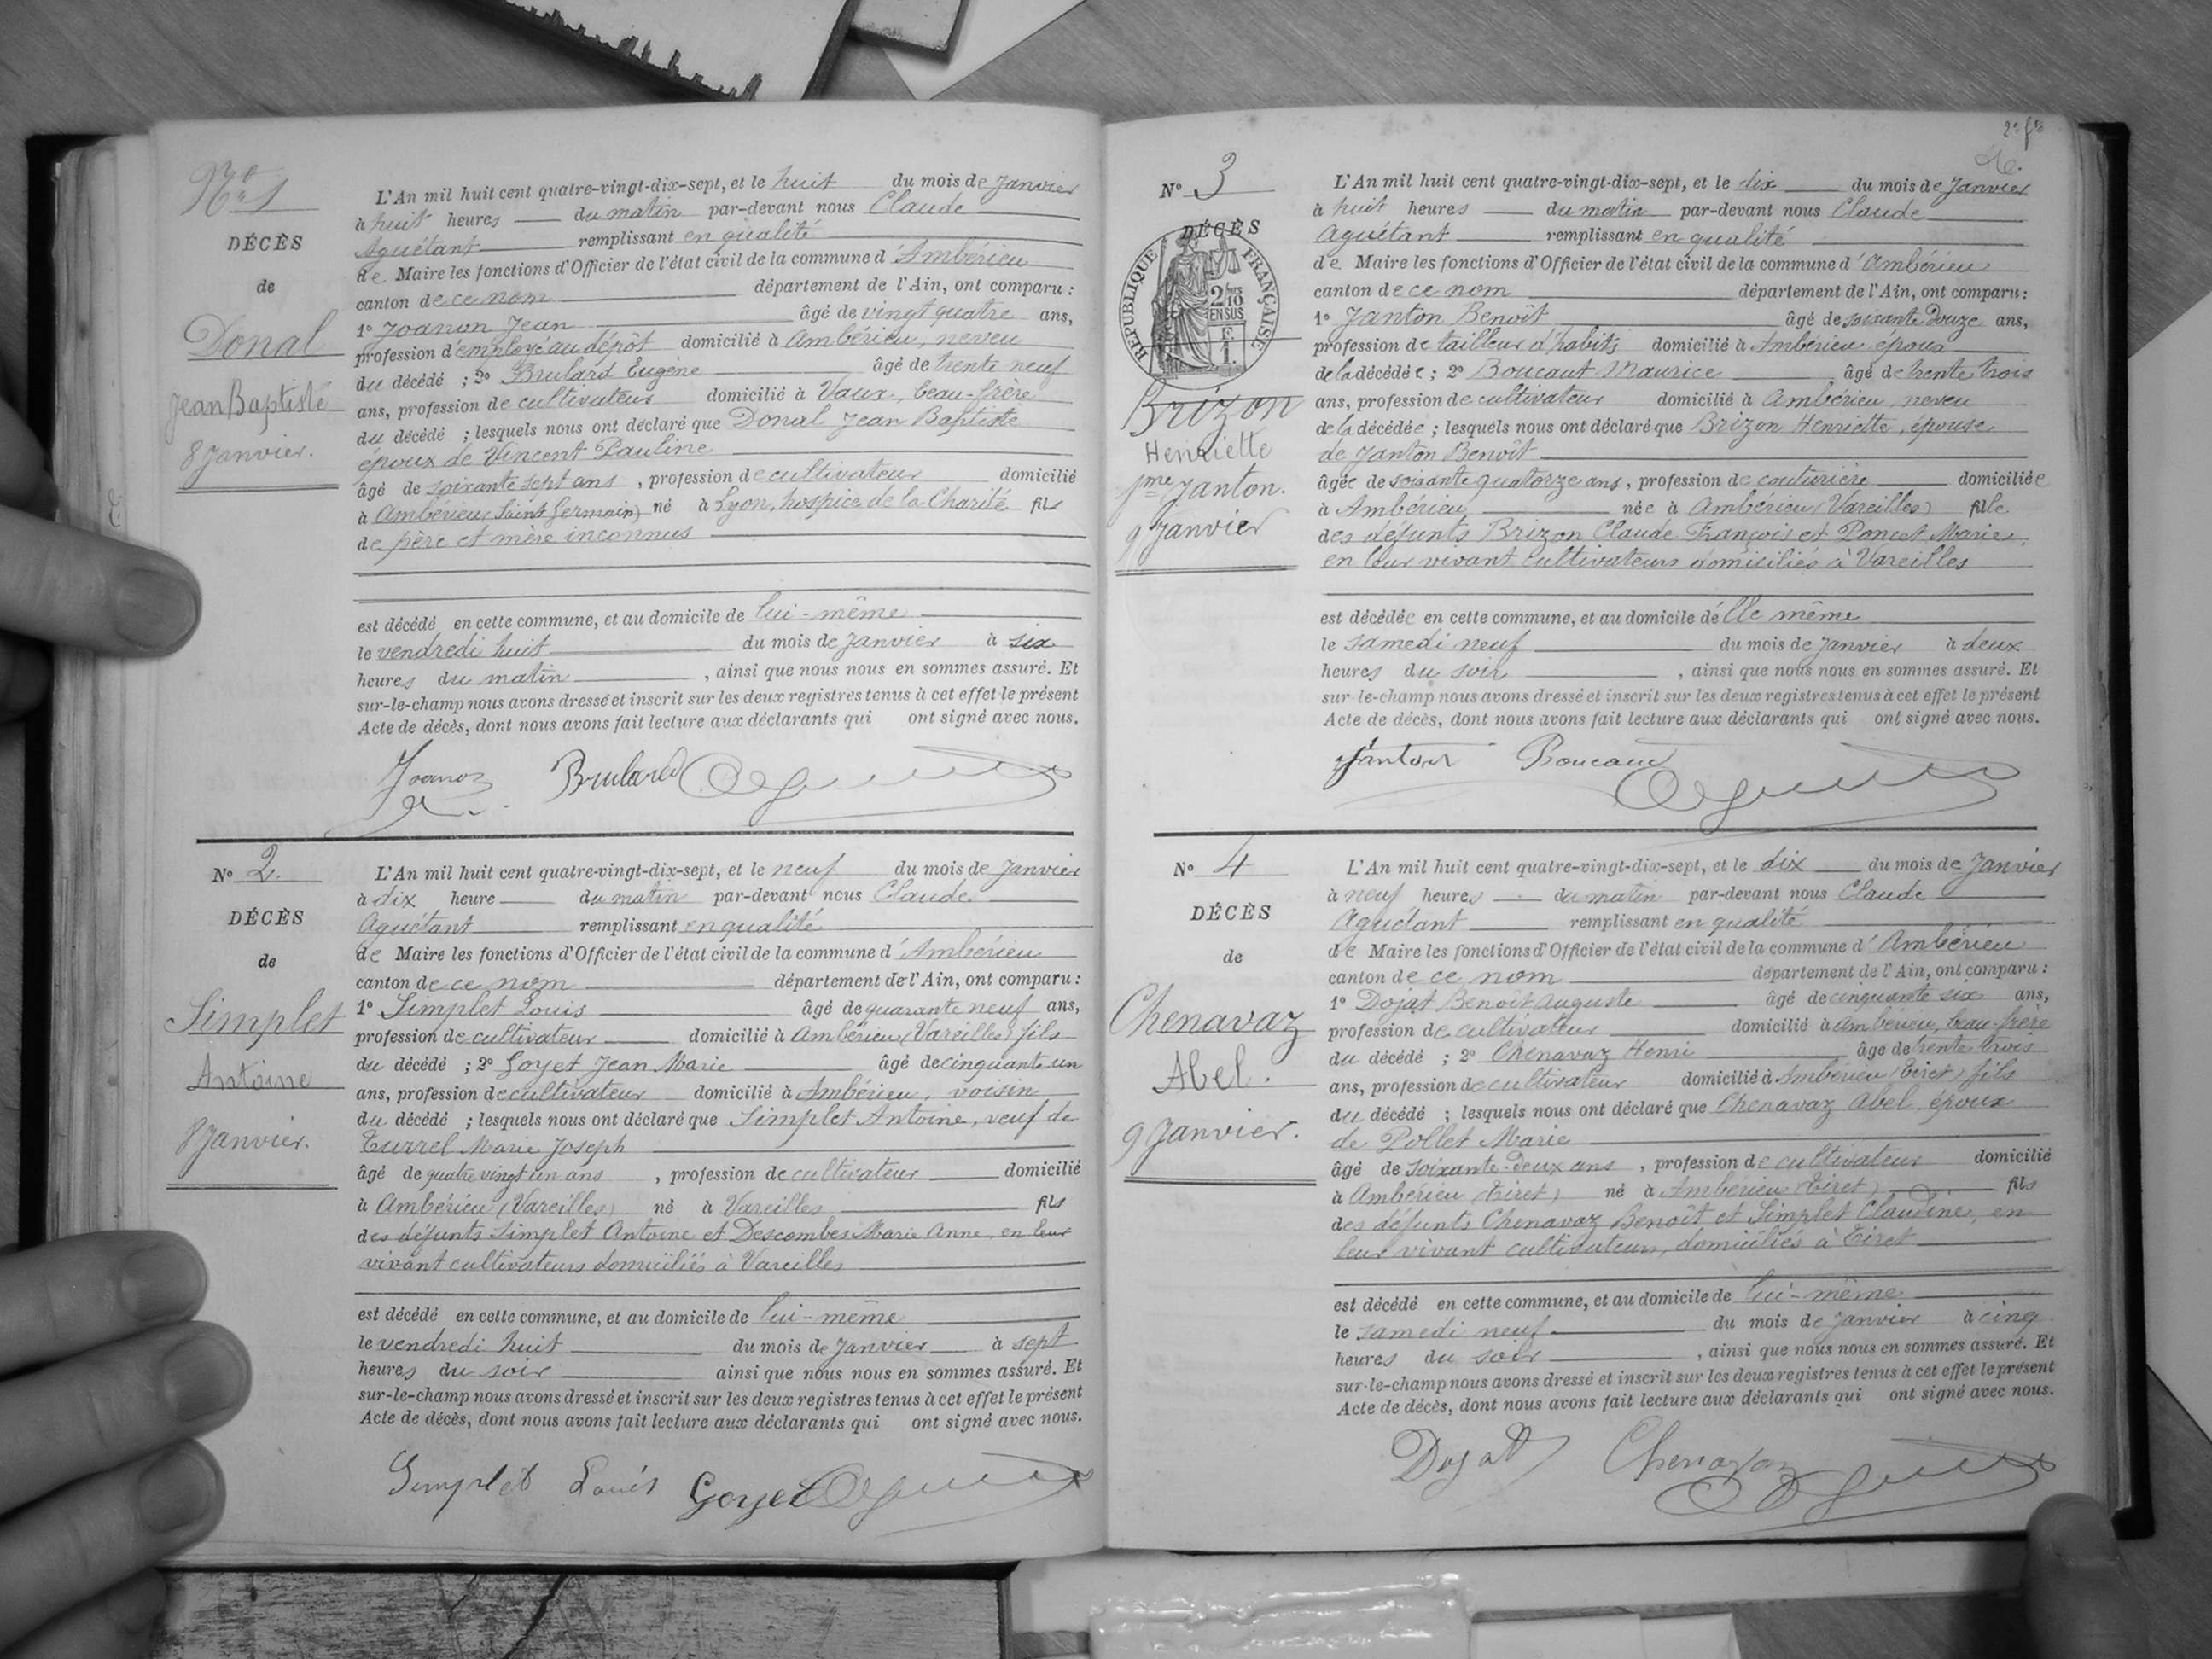 No 1
DÉCÈS
de
Donal
Jean Baptiste
8 Janvier.
L'An mil huit cent quatre-vingt-dix-sept, et le huit du mois de Janvier
à huit heures du matin par-devant nous Claude
Aguétant remplissant en qualité
de Maire les fonctions d'Officier de l'état civil de la commune d'Ambérieu
canton de ce nom département de l'Ain, ont comparu :
1º Joanon Jean âgé de vingt quatre ans,
profession d'employé au dépôt domicilié à Ambérieu, neveu
du décédé ; 2º Brulard Eugène âgé de trente neuf
ans, profession de cultivateur domicilié à Vaux, beau-frère
du décédé ; lesquels nous ont déclaré que Donal Jean Baptiste
époux de Vincent Pauline
âgé de soixante sept ans , profession de cultivateur domicilié
à Ambérieu (Saint Germain) né à Lyon, hospice de la Charité fils
de père et mère inconnus
est décédé en cette commune, et au domicile de lui-même
le vendredi huit du mois de Janvier à six
heures du matin , ainsi que nous nous en sommes assuré. Et
sur-le-champ nous avons dressé et inscrit sur les deux registres tenus à cet effet le présent
Acte de décès, dont nous avons fait lecture aux déclarants qui ont signé avec nous.
Joanon Brulard
No 2.
DÉCÈS
de
Simplet
Antoine
8 Janvier.
L'An mil huit cent quatre-vingt-dix-sept, et le neuf du mois de Janvier
à dix heure du matin par-devant nous Claude
Aguétant remplissant en qualité
de Maire les fonctions d'Officier de l'état civil de la commune d'Ambérieu
canton de ce nom département de l'Ain, ont comparu :
1º Simplet Louis âgé de quarante neuf ans,
profession de cultivateur domicilié à Ambérieu (Vareilles) fils
du décédé ; 2º Goyet Jean Marie âgé de cinquante un
ans, profession de cultivateur domicilié à Ambérieu, voisin
du décédé ; lesquels nous ont déclaré que Simplet Antoine, veuf de
Turrel Marie Joseph
âgé de quatre vingt un ans , profession de cultivateur domicilié
à Ambérieu (Vareilles) né à Vareilles fils
des défunts Simplet Antoine et Descombes Marie Anne, en leur
vivant cultivateurs domiciliés à Vareilles
est décédé en cette commune, et au domicile de lui-même
le vendredi huit du mois de Janvier à sept
heures du soir ainsi que nous nous en sommes assuré. Et
sur-le-champ nous avons dressé et inscrit sur les deux registres tenus à cet effet le présent
Acte de décès, dont nous avons fait lecture aux déclarants qui ont signé avec nous.
Simplet Louis Goyet
No 3
DÉCÈS
RÉPUBLIQUE FRANÇAISE
2/10 EN SUS
Brizon
Henriette
fme Janton.
9 Janvier
L'An mil huit cent quatre-vingt-dix-sept, et le dix du mois de Janvier
à huit heures du matin par-devant nous Claude
Aguétant remplissant en qualité
de Maire les fonctions d'Officier de l'état civil de la commune d'Ambérieu
canton de ce nom département de l'Ain, ont comparu :
1º Janton Benoît âgé de soixante douze ans,
profession de tailleur d'habits domicilié à Ambérieu époux
de la décédée ; 2º Boucaut Maurice âgé de trente trois
ans, profession de cultivateur domicilié à Ambérieu neveu
de la décédée ; lesquels nous ont déclaré que Brizon Henriette, épouse
de Janton Benoît
âgée de soixante quatorze ans, profession de couturière domiciliée
à Ambérieu née à Ambérieu (Vareilles) fille
des défunts Brizon Claude François et Poncet Marie,
en leur vivant cultivateurs domiciliés à Vareilles
est décédée en cette commune, et au domicile d'elle même
le samedi neuf du mois de Janvier à deux
heures du soir , ainsi que nous nous en sommes assuré. Et
sur-le-champ nous avons dressé et inscrit sur les deux registres tenus à cet effet le présent
Acte de décès, dont nous avons fait lecture aux déclarants qui ont signé avec nous.
Janton Boucaut
No 4
DÉCÈS
de
Chenavaz
Abel.
9 Janvier.
L'An mil huit cent quatre-vingt-dix-sept, et le dix du mois de Janvier
à neuf heures du matin par-devant nous Claude
Aguétant remplissant en qualité
de Maire les fonctions d'Officier de l'état civil de la commune d'Ambérieu
canton de ce nom département de l'Ain, ont comparu :
1º Dojat Benoît Auguste âgé de cinquante six ans,
profession de cultivateur domicilié à Ambérieu, beau-frère
du décédé ; 2º Chenavaz Henri âgé de trente trois
ans, profession de cultivateur domicilié à Ambérieu (Tiret) fils
du décédé ; lesquels nous ont déclaré que Chenavaz Abel, époux
de Pollet Marie
âgé de soixante-deux ans , profession de cultivateur domicilié
à Ambérieu (Tiret) né à Ambérieu (Tiret) fils
des défunts Chenavaz Benoît et Simplet Claudine, en
leur vivant cultivateurs, domiciliés à Tiret
est décédé en cette commune, et au domicile de lui-même
le samedi neuf du mois de Janvier à cinq
heures du soir , ainsi que nous nous en sommes assuré. Et
sur-le-champ nous avons dressé et inscrit sur les deux registres tenus à cet effet le présent
Acte de décès, dont nous avons fait lecture aux déclarants qui ont signé avec nous.
Dojat Chenavaz